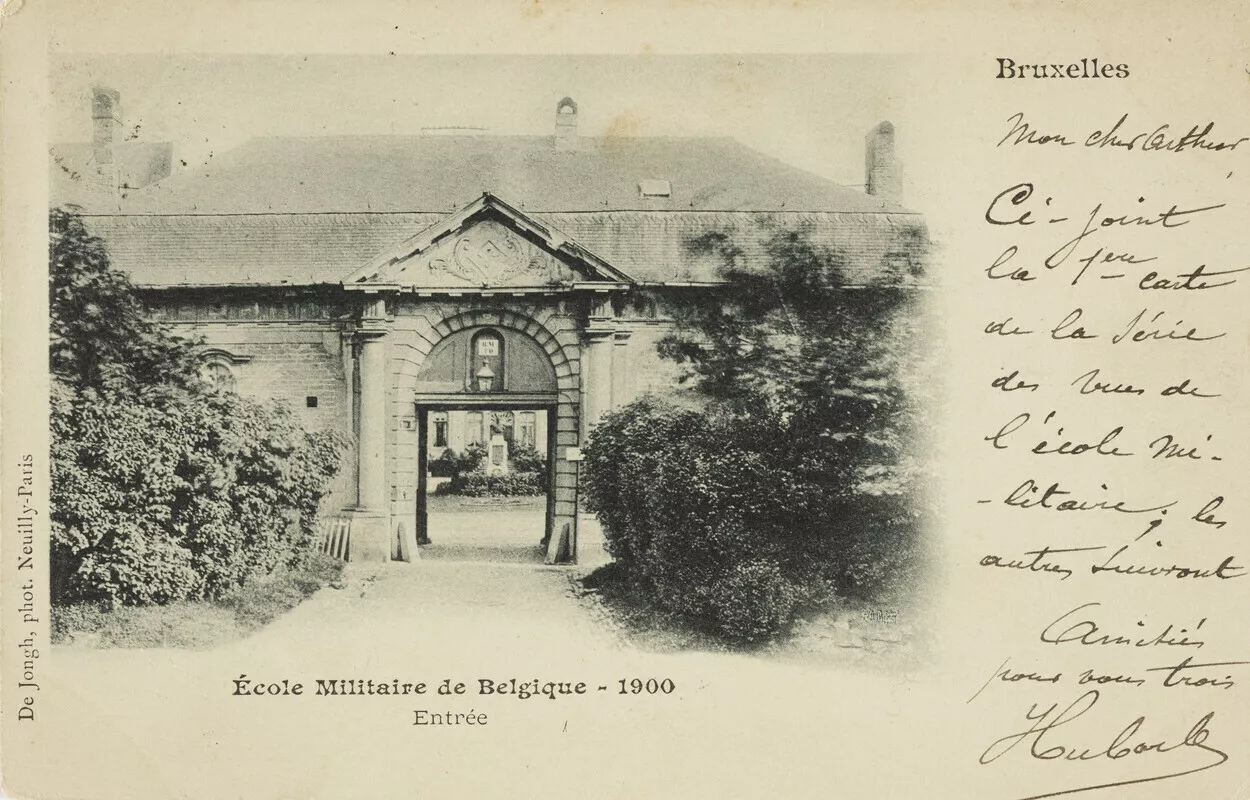 Bruxelles
Mon cher Arthur
Ci-joint
la 1ere carte
de la série
des vues de
l'école mi-
-litaire ; les
autres suivront
Amitiés
pour vous trois
École Militaire de Belgique - 1900
Entrée
De Jongh, phot. Neuilly-Paris